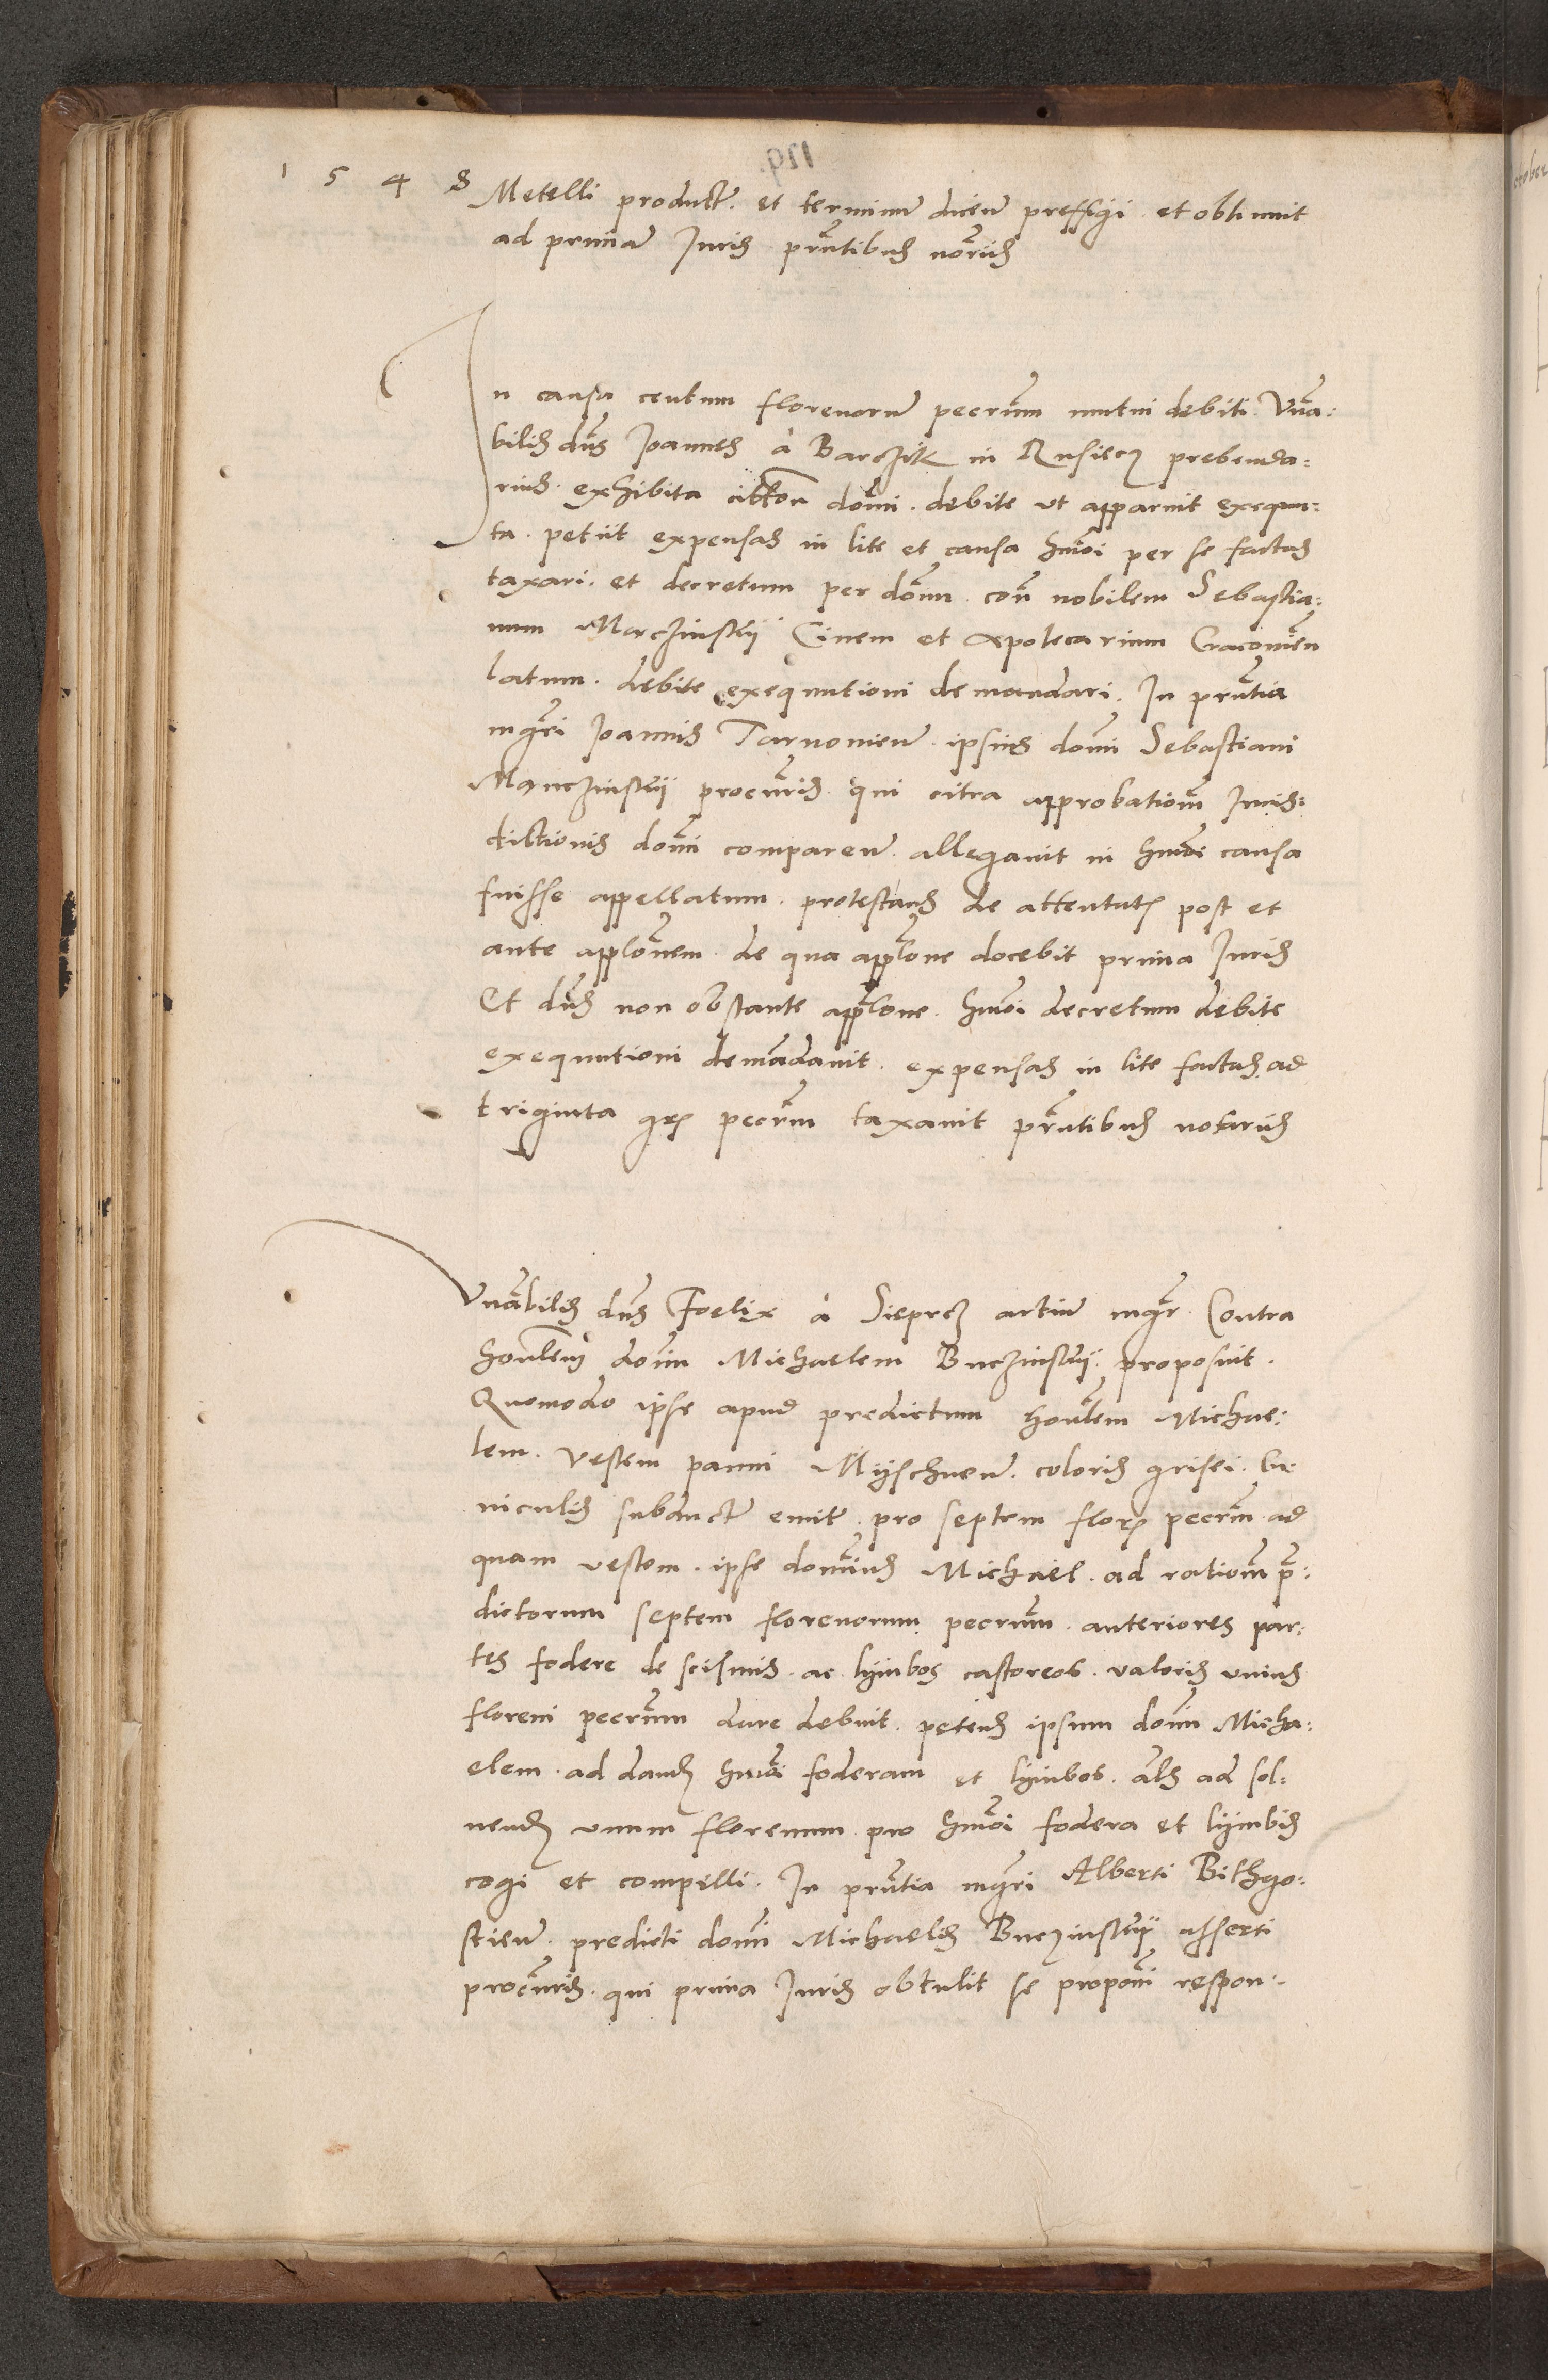 1 5 4 8
Metelli product. et terminum dicen prefigi et obtinuit
ad primam Juris prntibus notriis
In causa centum florenorum pecrum mutui debiti. Vna:
bilis dns Joannes a Barczik in Rusiecz prebenda:
rius exhibita cittone domi. debite ut apparuit exequu:
ta. petiit expensas in lite et causa hmoi per se factas
taxari. et decretum per domi. con nobilem Sebastia:
num Marczinskij Civem et apotecarium Cracovien
latum. debite exequutioni demandari. In prntia
mgri Joannis Tarnovien ipsius domi Sebastiani
Marczinskij procuris qui citra approbationem Juris:
dictionis domi comparen allegavit in hmoi causa
fuisse appellatum. protestans de attentatis post et
ante applonem de qua applone docebit prima Juris
Et dns non obstante applone. hmoi decretum debite
exequutioni demandavit. expensas in lite factas ad
triginta grs pecrum taxavit prntibus notariis
Vnabilis dns Foelix a Sieprcz artium mgr Contra
honlem domi Michaelem Buczinskij proposuit.
Quomodo ipse apud predictum honlem Michae:
lem. vestem panni Mijschnen. coloris grisei. Cu
niculis subduct emit. pro septem flor pecrum ad
quam vestem. ipse dominus Michael. ad rationem pre:
dictorum septem florenorum pecrum. anteriores par:
tes fodere de scismis. ac lijmbos castoreos. valoris unius
floreni pecrum dare debuit. petens ipsum domi Micha:
elem. ad dand hmoi foderam et lijmbos. als ad sol:
vend unum florenum pro hmoi fodera et lijmbis
cogi et compelli. In prntia mgri Alberti Bithgo:
stien. predicti domi Michaelis Buczinskij asserti
procuris. qui prima Juris obtulit se proponi respon: